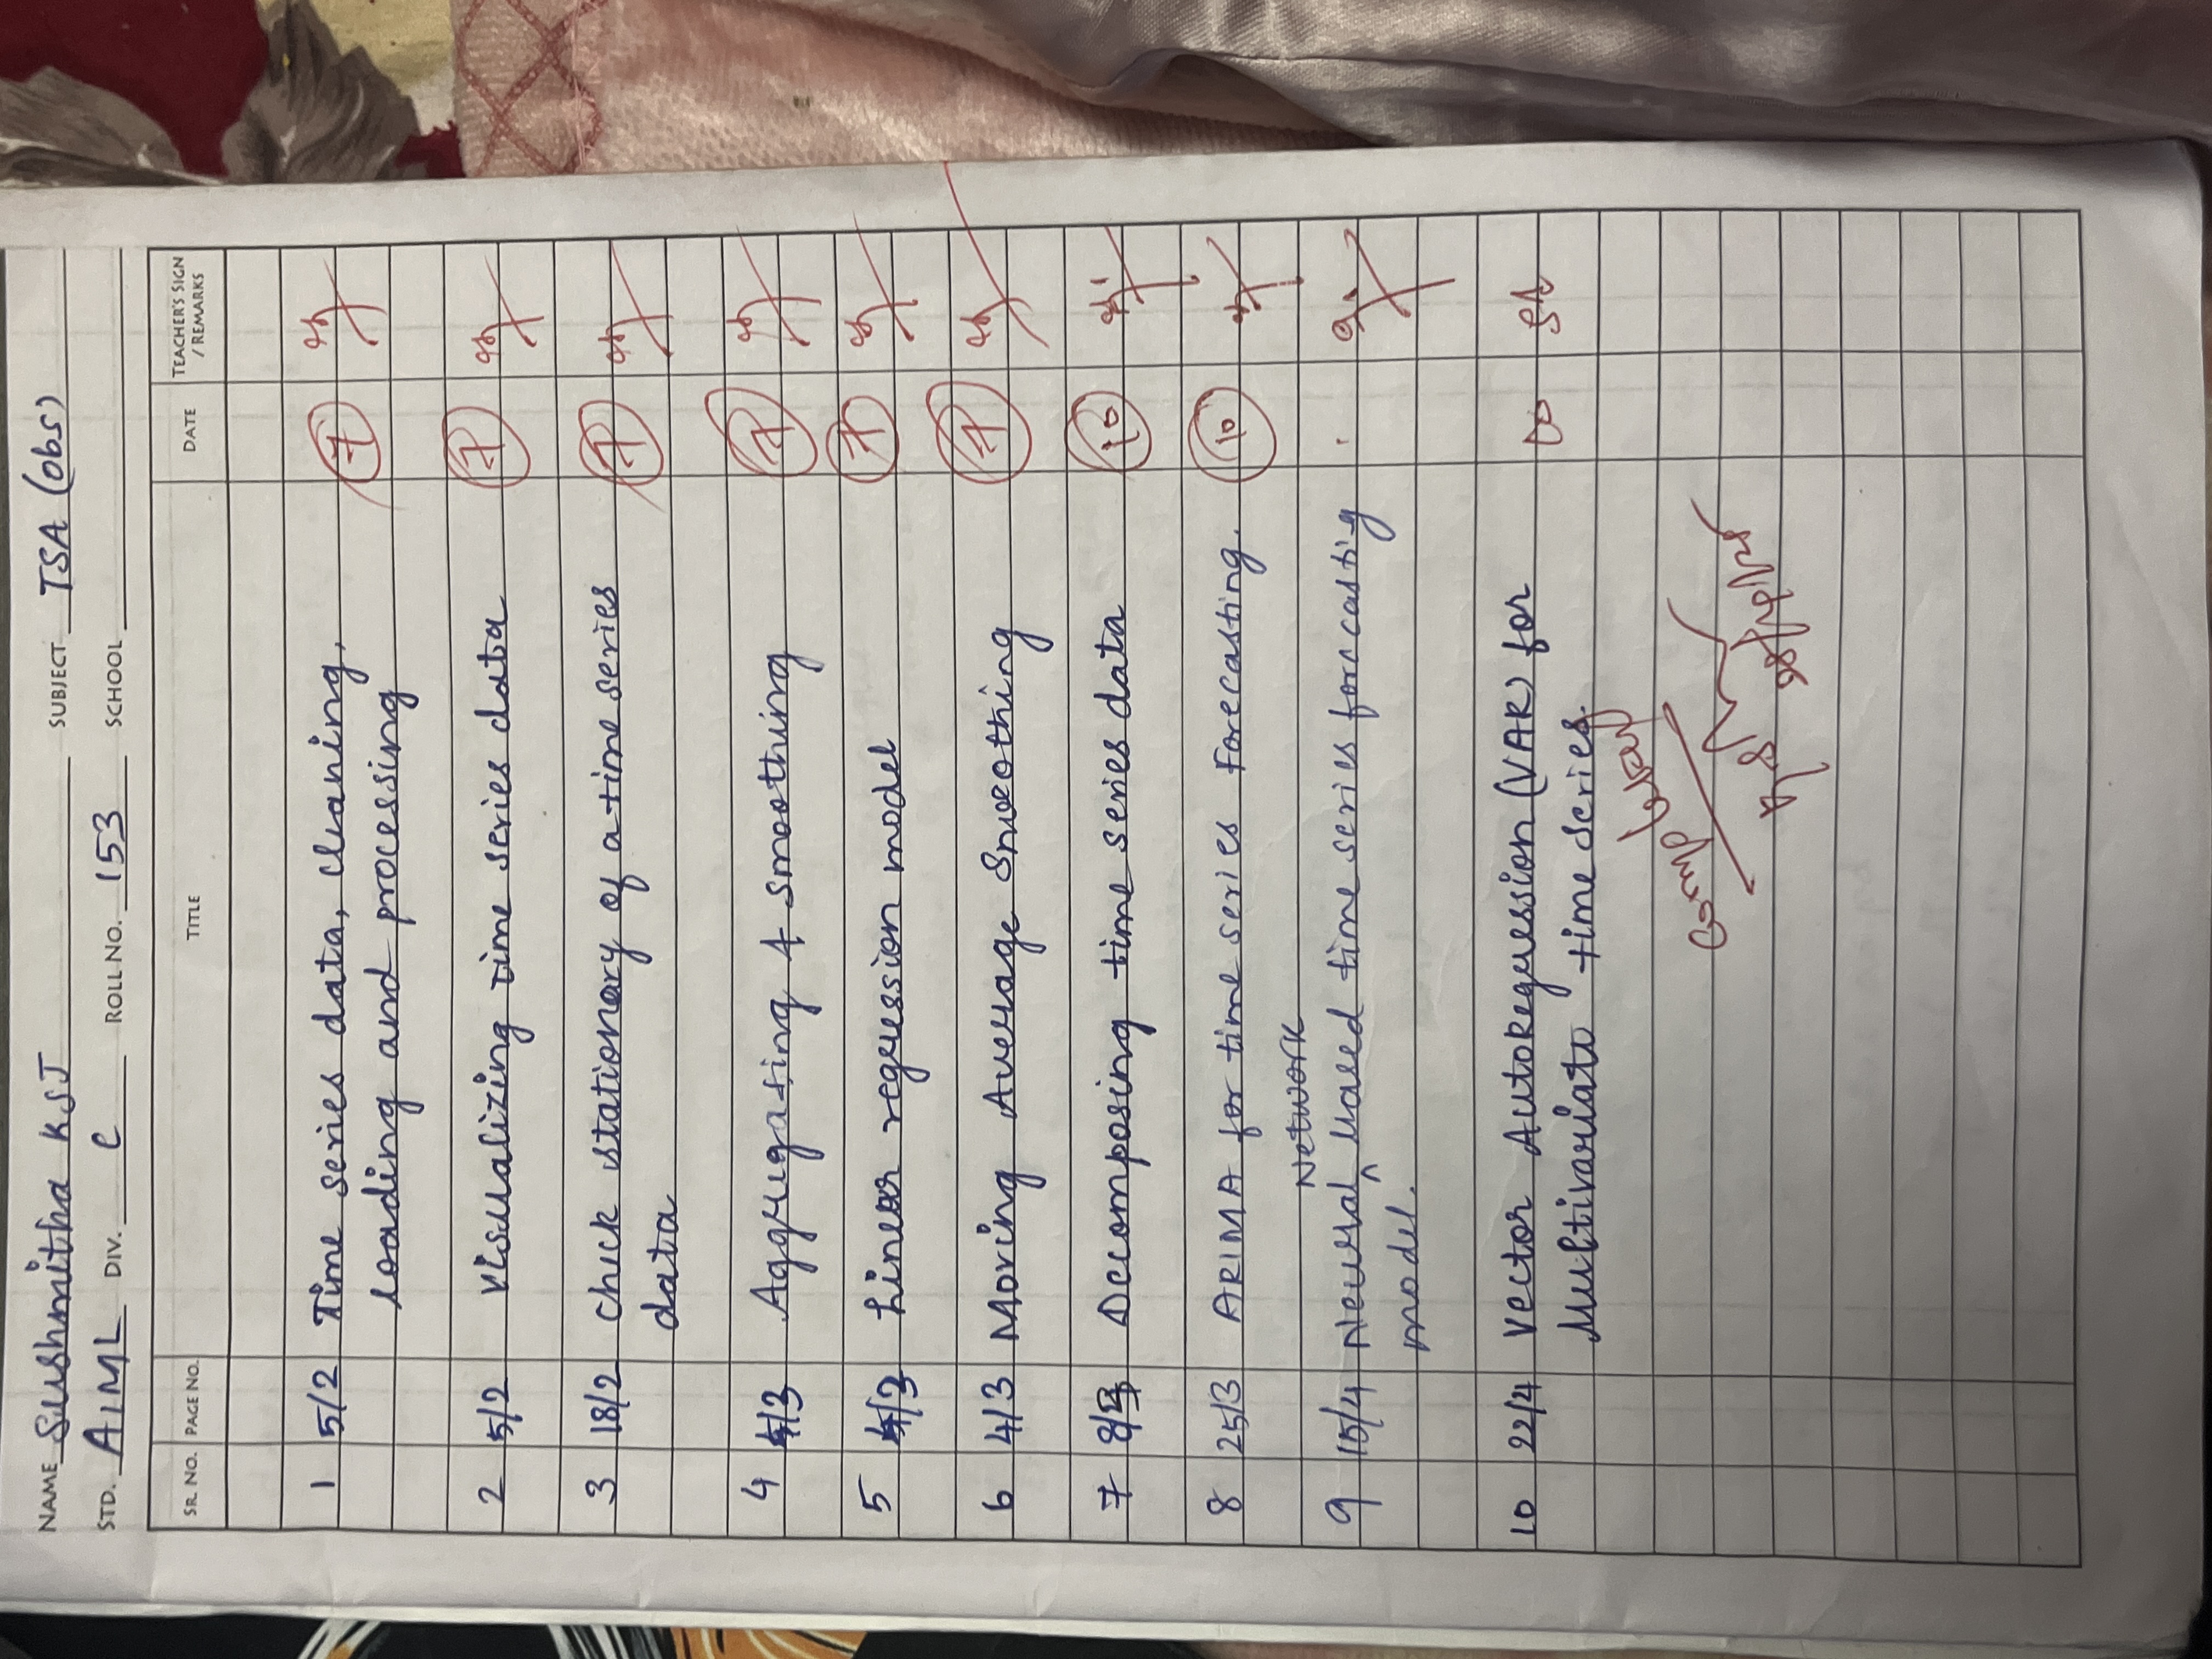 NAME Sushmitha K.S.J SUBJECT TSA (obs)
STD. AIML DIV. C ROLL NO. 153 SCHOOL
SR. NO. PAGE NO. TITLE DATE TEACHER'S SIGN / REMARKS
1 5/2 Time series data, cleaning, 7
loading and processing
2 5/2 Visualizing time series data 7
3 18/2 check stationary of a time series 7
data
4 4/3 Aggregating & Smoothing 7
5 4/3 Linear regression model 7
6 4/3 Moring Average Smoothing 7
7 8/3 Decomposing time series data 10
8 25/3 ARIMA for time series Forecasting. 10
Network
9 15/4 Neural ^ based time series forecastig
model.
10 22/4 Vector AutoRegression (VAR) for 10
Multivariate time series.
Completed